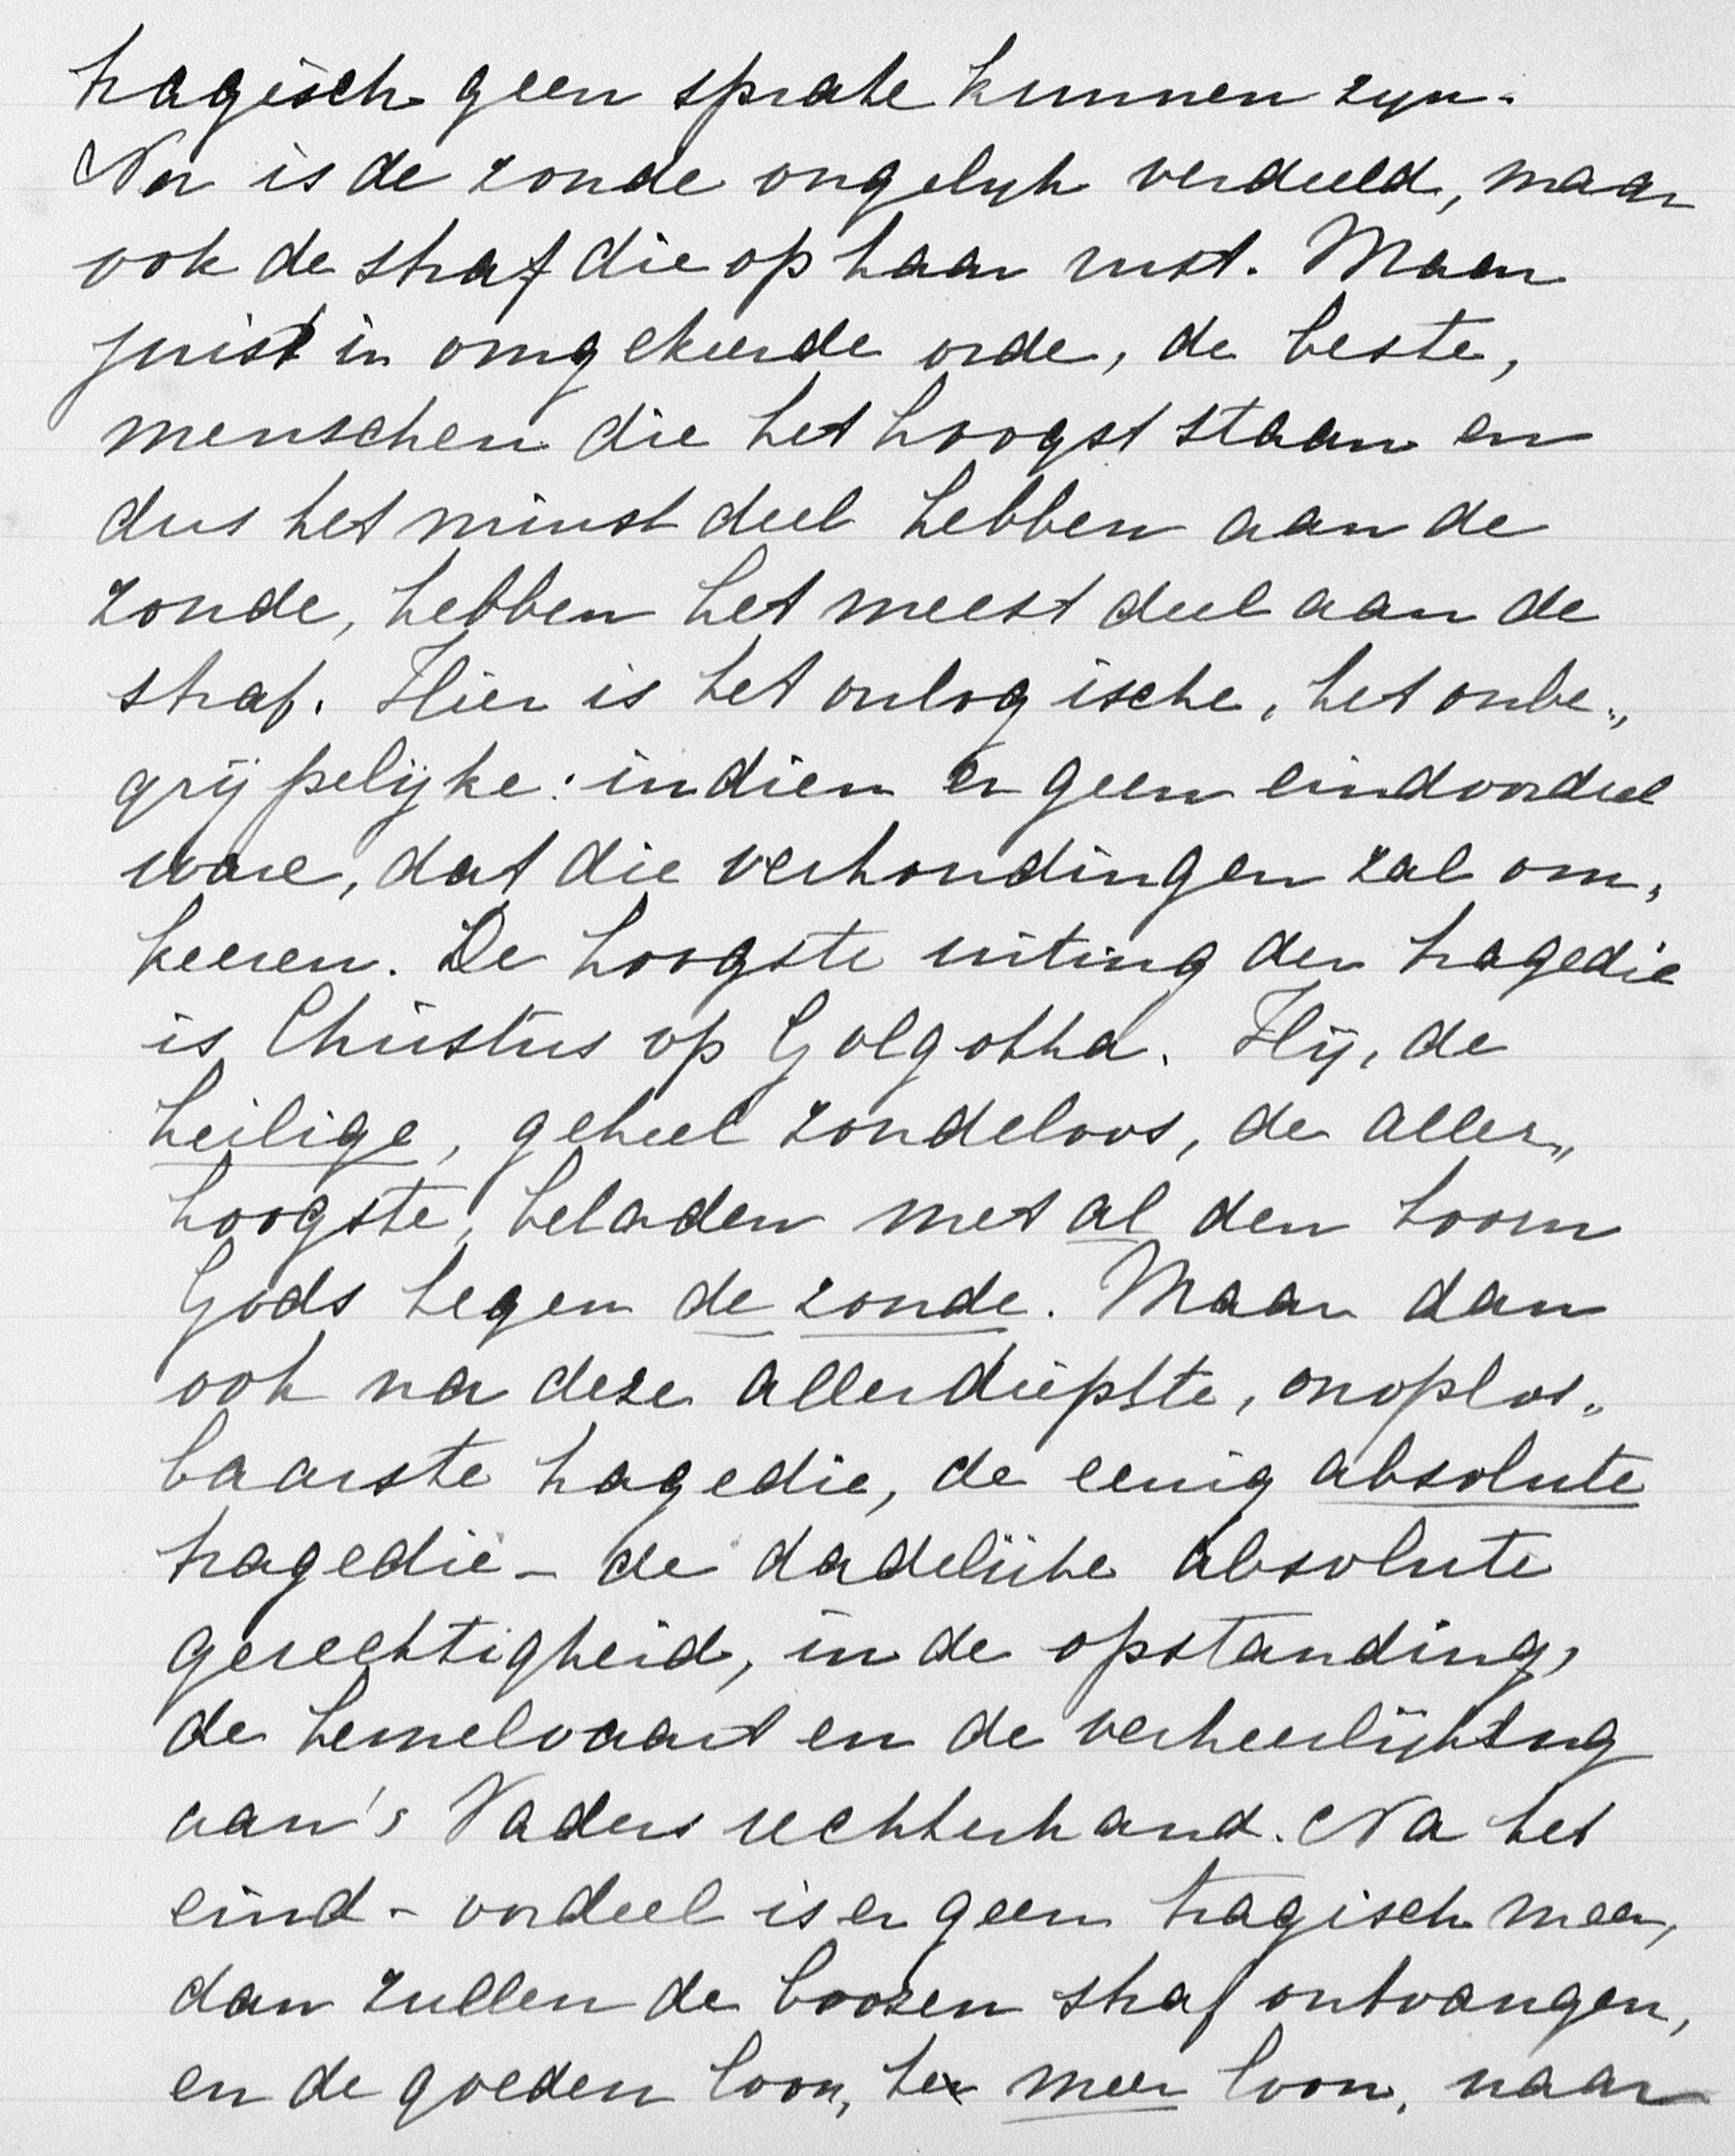 tragisch geen sprake kunnen zijn.
Nu is de zonde ongelijk verdeeld, maar
ook de straf die op haar rust. Maar
juist in omgekeerde orde, de beste,
menschen die het hoogst staan en
dus het minst deel hebben aan de
zonde, hebben het meest deel aan de
straf. Hier is het onlogische, het onbe„
grijpelijke: indien er geen eindoordeel
ware, dat die verhoudingen zal om„
keeren. De hoogste uiting der tragedie
is Christus op Golgotha. Hij, de
heilige, geheel zondeloos, de aller„
hoogste, beladen met al den toorn
Gods tegen de zonde. Maar dan
ook na deze allerdiepste, onoplos„
baarste tragedie, de eenig absolute
tragedie - de dadelijke absolute
gerechtigheid, in de opstanding,
de hemelvaart en de verheerlijking
aan 's Vaders rechterhand. Na het
eind-oordeel is er geen tragisch meer,
dan zullen de boozen straf ontvangen,
en de goeden loon, te meer loon, naar